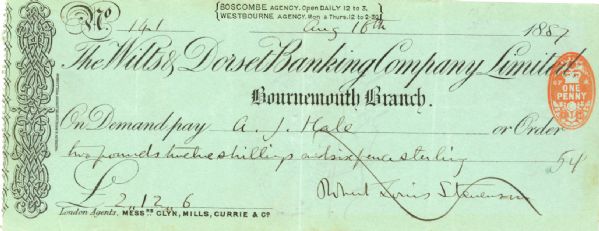 BOSCOMBE AGENCY. Open DAILY 12 to 3.
WESTBOURNE AGENCY. Mon & Thurs. 12 to 2-30
No. 141 Aug 16th 1887
The Wilts & Dorset Banking Company Limited.
ONE PENNY
Bournemouth Branch.
On Demand pay A. J. Hale or Order
two pounds twelve shillings and sixpence sterling 54
£ 2,,12,,6
Robert Louis Stevenson
London Agents, MESSRS GLYN, MILLS, CURRIE & Co